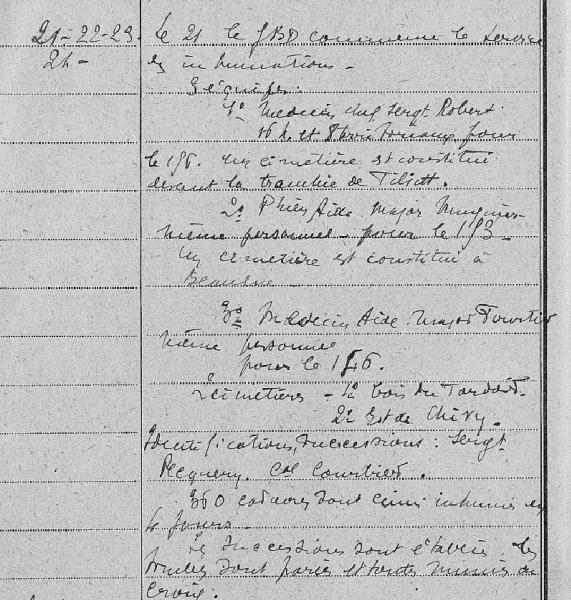 21-22-23. Le 21 le GBD commence le service
24- des inhumations -
3 équipes:
1° Médecin chef Sergt Robert
16 h. et pour
le 156. un cimetière est constitué
devant la tranchée de Tilsitt.
2° Phien Aide Major
même personnel - pour le 153 -
un cimetière est constitué à
Beaulne -
3° Médecin Aide-Major
même personnel
pour le 146.
2 cimetières - 1° bois du
2° Est de Chivy.
Identifications, successions: Sergt
Pecquery. Cal Courbier.
360 cadavres sont ainsi inhumés en
4 jours -
Les successions sont établies, les
tombes sont et toutes munies de
croix.